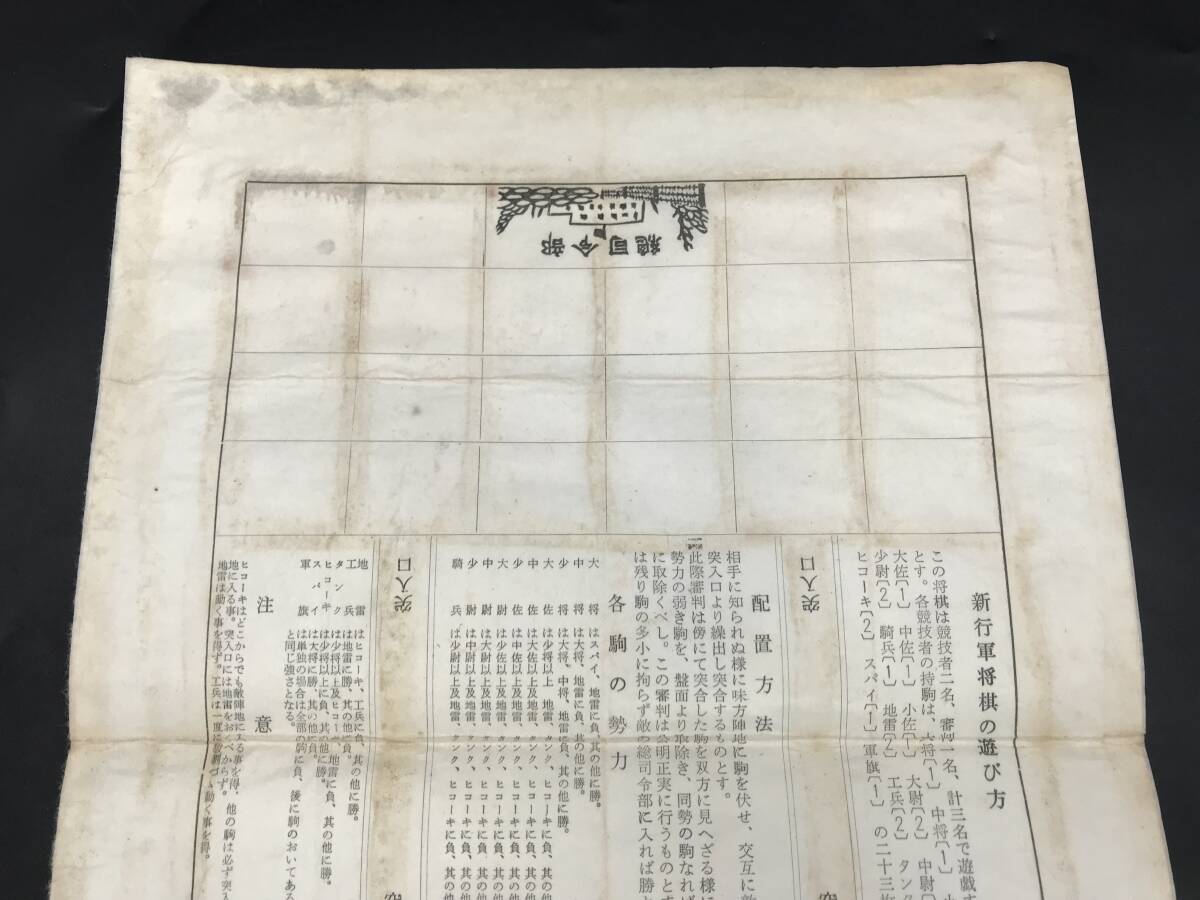 総司令部
新行軍将棋の遊び方
この将棋は競技者二名、審判一名、計三名で遊戯す
とす。各競技者の持駒は、大将〔1〕 中将〔1〕
大佐〔1〕 中佐〔1〕 小佐〔1〕 大尉〔2〕 中尉
少尉〔2〕 騎兵〔1〕 地雷〔2〕 工兵〔2〕 タン
ヒコーキ〔2〕 スパイ〔1〕 軍旗〔1〕 の二十三枚
突入口
配置方法
相手に知られぬ様に味方陣地に駒を伏せ、交互に敵
突入口より繰出し突合するものとす。
此際審判は傍にて突合した駒を双方に見へざる様に
勢力の弱き駒を、盤面より取除き、同勢の駒なれば
に取除くべし。この審判は公明正実に行うものとす
は残り駒の多小に拘らず敵の総司令部に入れば勝
各駒の勢力
大将 はスパイ、地雷に負、其の他に勝。
中将 は大将、地雷に負、其の他に勝。
少将 は大将、中将、地雷に負、其の他に勝。
大佐 は少将以上 地雷、タンク、ヒコーキに負、其の他
中佐 は大佐以上及地雷、タンク、ヒコーキに負、其の他
少佐 は中佐以上及地雷、タンク、ヒコーキに負、其の他
大尉 は少佐以上及地雷、タンク、ヒコーキに負、其の他
中尉 は大尉以上及地雷、タンク、ヒコーキに負、其の他
少尉 は中尉以上及地雷、タンク、ヒコーキに負、其の他
騎兵 は少尉以上及地雷、タンク、ヒコーキに負、其の他
突入口
地雷 はヒコーキ、工兵に負、其の他に勝。
工兵 は地雷に勝、其の他に負。
タンク は少将以上及ヒコーキ、地雷に負、其の他に勝。
ヒコーキ は少将以上に負、其の他に勝。
スパイ は大将に勝、其の他に負。
軍旗 は単独の場合は全部の駒に負、後に駒のおいてある
と同じ強さとなる。
注意
ヒコーキはどこからでも敵陣地に入る事を得、他の駒は必ず突入
地に入る事。突入口には地雷をおくべからず。
地雷は動く事を得ず。工兵は一度に数割づゝ動く事を得。